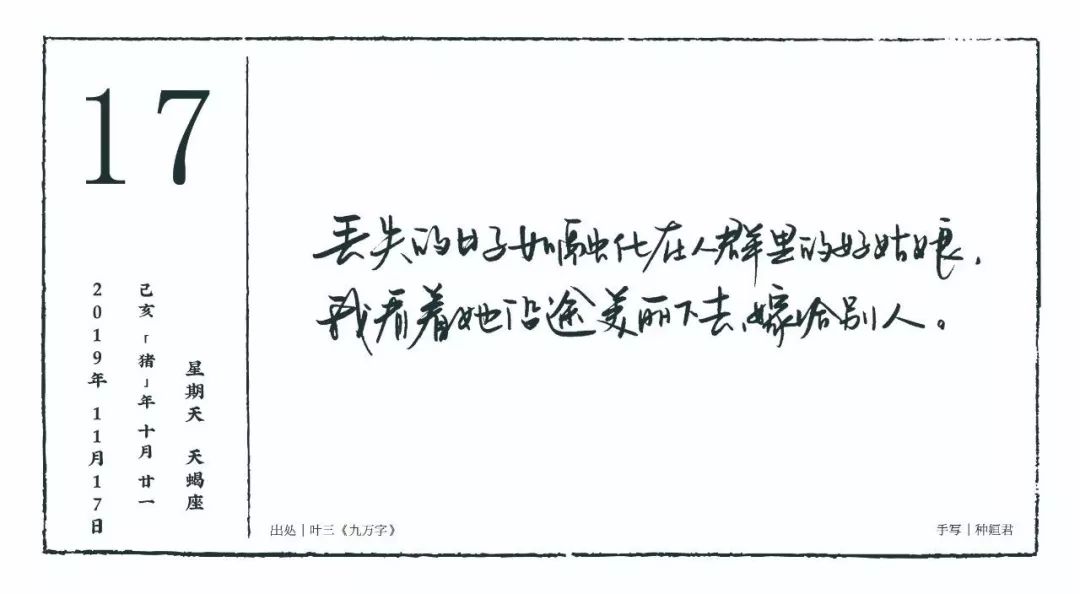 17
2019年 11月17日
己亥「猪」年 十月 廿一
星期天 天蝎座
丢失的日子如融化在人群里的好姑娘，
我看着她沿途美丽下去、嫁给别人。
出处｜叶三《九万字》
手写｜种䱉君